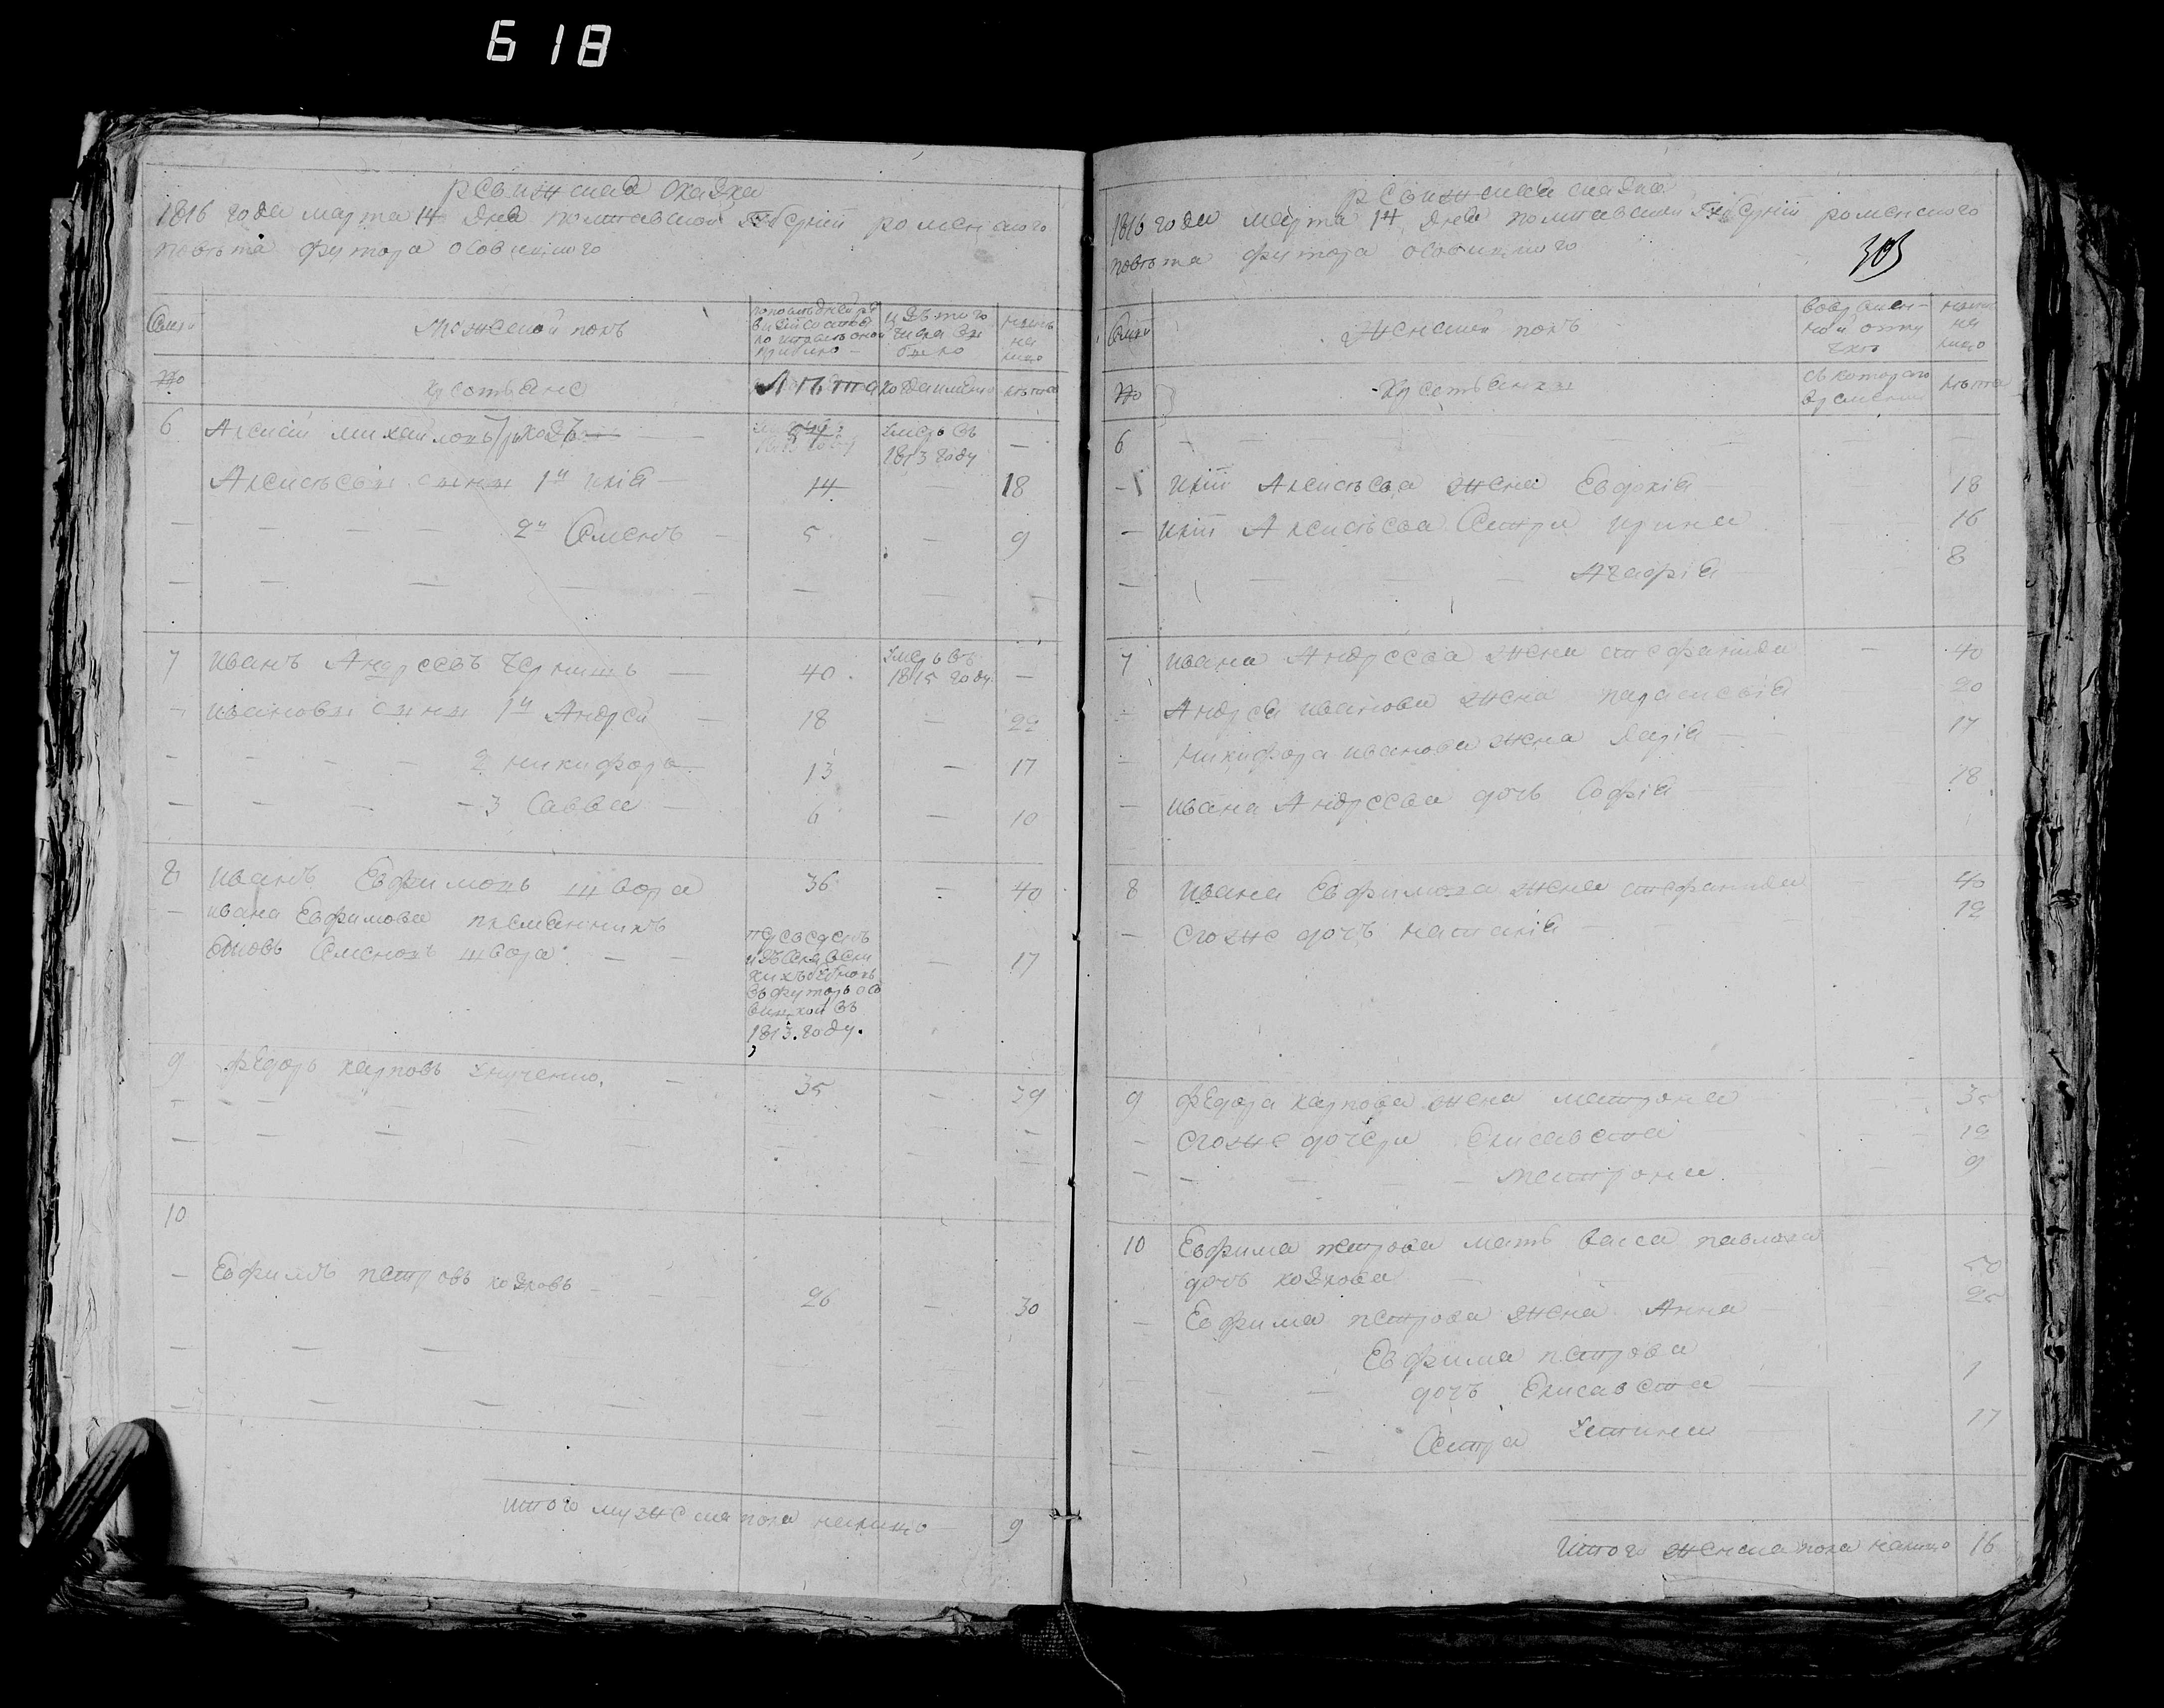 618
ревижская скаска
1816 года марта 14 дня полтавской губернии роменского
повѣта футора осовицкого
Семьи
Мужеской полъ
по последней ре
визіи состоя
ло
и зъ того
числа вы
было
ныне
на
лицо
№
крестьяне
Лѣта
когда имянно
лета
6
Алексей михайловъ
умерь въ
1813 году
—
Алексѣевы сыны 1й илія 14 — 18
2й Семенъ 5 — 9
7 иванъ Андреевъ Чернышъ 40 умерь въ
1815 году —
ивановы сыны 1й Андрей 18 — 22
2 никифоръ 13 — 17
3 Савва 6 — 10
8 иванъ Евфимовъ швора 36 — 40
ивана Евфимова племянникъ
Семеновъ швора — 17
переведенъ
въ футоръ осо
вицкой въ
1813 году.
9 федоръ карповъ 35 — 39
10
Евфимъ петровъ козловъ 26 — 30
итого мужеска пола налицо 9
ревижская скаска
1816 года марта 14 дня полтавской губерніи роменского
303
повѣта футора осовицкого
Семьи
Женской полъ
во времен-
ной отлу
чке
ныне
на
лицо
№
крестьянки
съ которого
времени
лѣта
6
иліи Алексѣева жена Евдокія 18
иліи Алексѣева Сестри ирина 16
Агафія 8
7 ивана Андреева жена стефанида 40
Андрея иванова жена параскевія 20
никифора иванова жена дарія 17
ивана Андреева дочь Софія 18
8 ивана Евфимова жена стефанида 40
егоже дочь наталія 12
9 федора карпова жена матрона 35
егоже дочери Елисавета 12
матрона 9
10 Евфима петрова мать васса павлова
дочь козлова 50
Евфима петрова жена Анна 25
Евфима петрова
дочь Елисавета 1
Сестра устинья 17
итого женска пола налицо 16